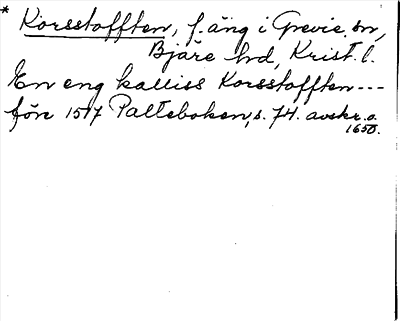 * Korsstofften, f. äng i Grevie sn,
Bjäre hd, Krist. l.
En eng kalliss Korsstofften ---
före 1517 Palteboken, s. 74. avskr. o.
1650.